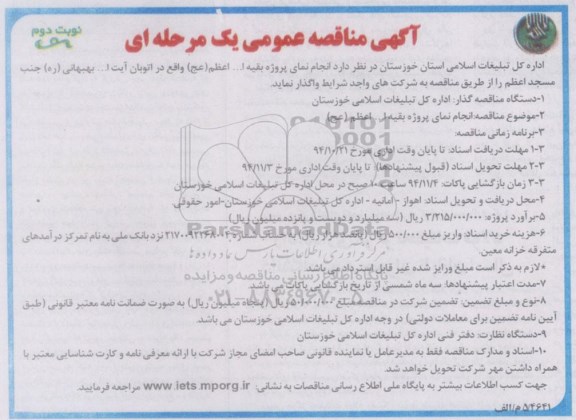 آگهی مناقصه عمومی یک مرحله ای
نوبت دوم
اداره کل تبلیغات اسلامی استان خوزستان در نظر دارد انجام نمای پروژه بقیه ا... اعظم(عج) واقع در اتوبان آیت ا... بهبهانی (ره) جنب
مسجد اعظم را از طریق مناقصه به شرکت های واجد شرایط واگذار نماید.
۱-دستگاه مناقصه گذار: اداره کل تبلیغات اسلامی خوزستان
۲-موضوع مناقصه:انجام نمای پروژه بقیه ا... اعظم (عج)
۳-برنامه زمانی مناقصه:
۳-۱ مهلت دریافت اسناد: تا پایان وقت اداری مورخ ۹۴/۱۰/۲۱
۳-۲ مهلت تحویل اسناد (قبول پیشنهادها) تا پایان وقت اداری مورخ ۹۴/۱۱/۳
۳-۳ زمان بازگشایی پاکات: ۹۴/۱۱/۴ ساعت ۱۰ صبح در محل اداره کل تبلیغات اسلامی خوزستان
۴-محل دریافت و تحویل اسناد: اهواز - امانیه - اداره کل تبلیغات اسلامی خوزستان-امور حقوقی
۵-برآورد پروژه: ۳/۲۱۵/۰۰۰/۰۰۰ ریال (سه میلیارد و دویست و پانزده میلیون ریال)
۶-هزینه خرید اسناد: واریز مبلغ ۵۰۰/۰۰۰ ریال (پانصد هزار ریال) به حساب شماره نزد بانک ملی به نام تمرکز درآمدهای
متفرقه خزانه معین.
*لازم به ذکر است مبلغ ورایز شده غیر قابل استرداد می باشد.
۷-مدت اعتبار پیشنهادها: سه ماه شمسی از تاریخ بازگشایی پاکات می باشد
۸-نوع و مبلغ تضمین: تضمین شرکت در مناقصه مبلغ ریال (میلیون ریال) به صورت ضمانت نامه معتبر قانونی (طبق
آیین نامه تضمین برای معاملات دولتی) در وجه اداره کل تبلیغات اسلامی خوزستان می باشد.
۹-دستگاه نظارت: دفتر فنی اداره کل تبلیغات اسلامی خوزستان
۱۰-اسناد و مدارک مناقصه فقط به مدیرعامل یا نماینده قانونی صاحب امضای مجاز شرکت با ارائه معرفی نامه و کارت شناسایی معتبر با
همراه داشتن مهر شرکت تحویل خواهد شد.
جهت کسب اطلاعات بیشتر به پایگاه ملی اطلاع رسانی مناقصات به نشانی: www.iets.mporg.ir مراجعه فرمایید.
۵/۴۶۴۱ م/الف
ParsNamadData
مرکز فرآوری اطلاعات پارس نماد داده ها
پایگاه اطلاع رسانی مناقصه و مزایده